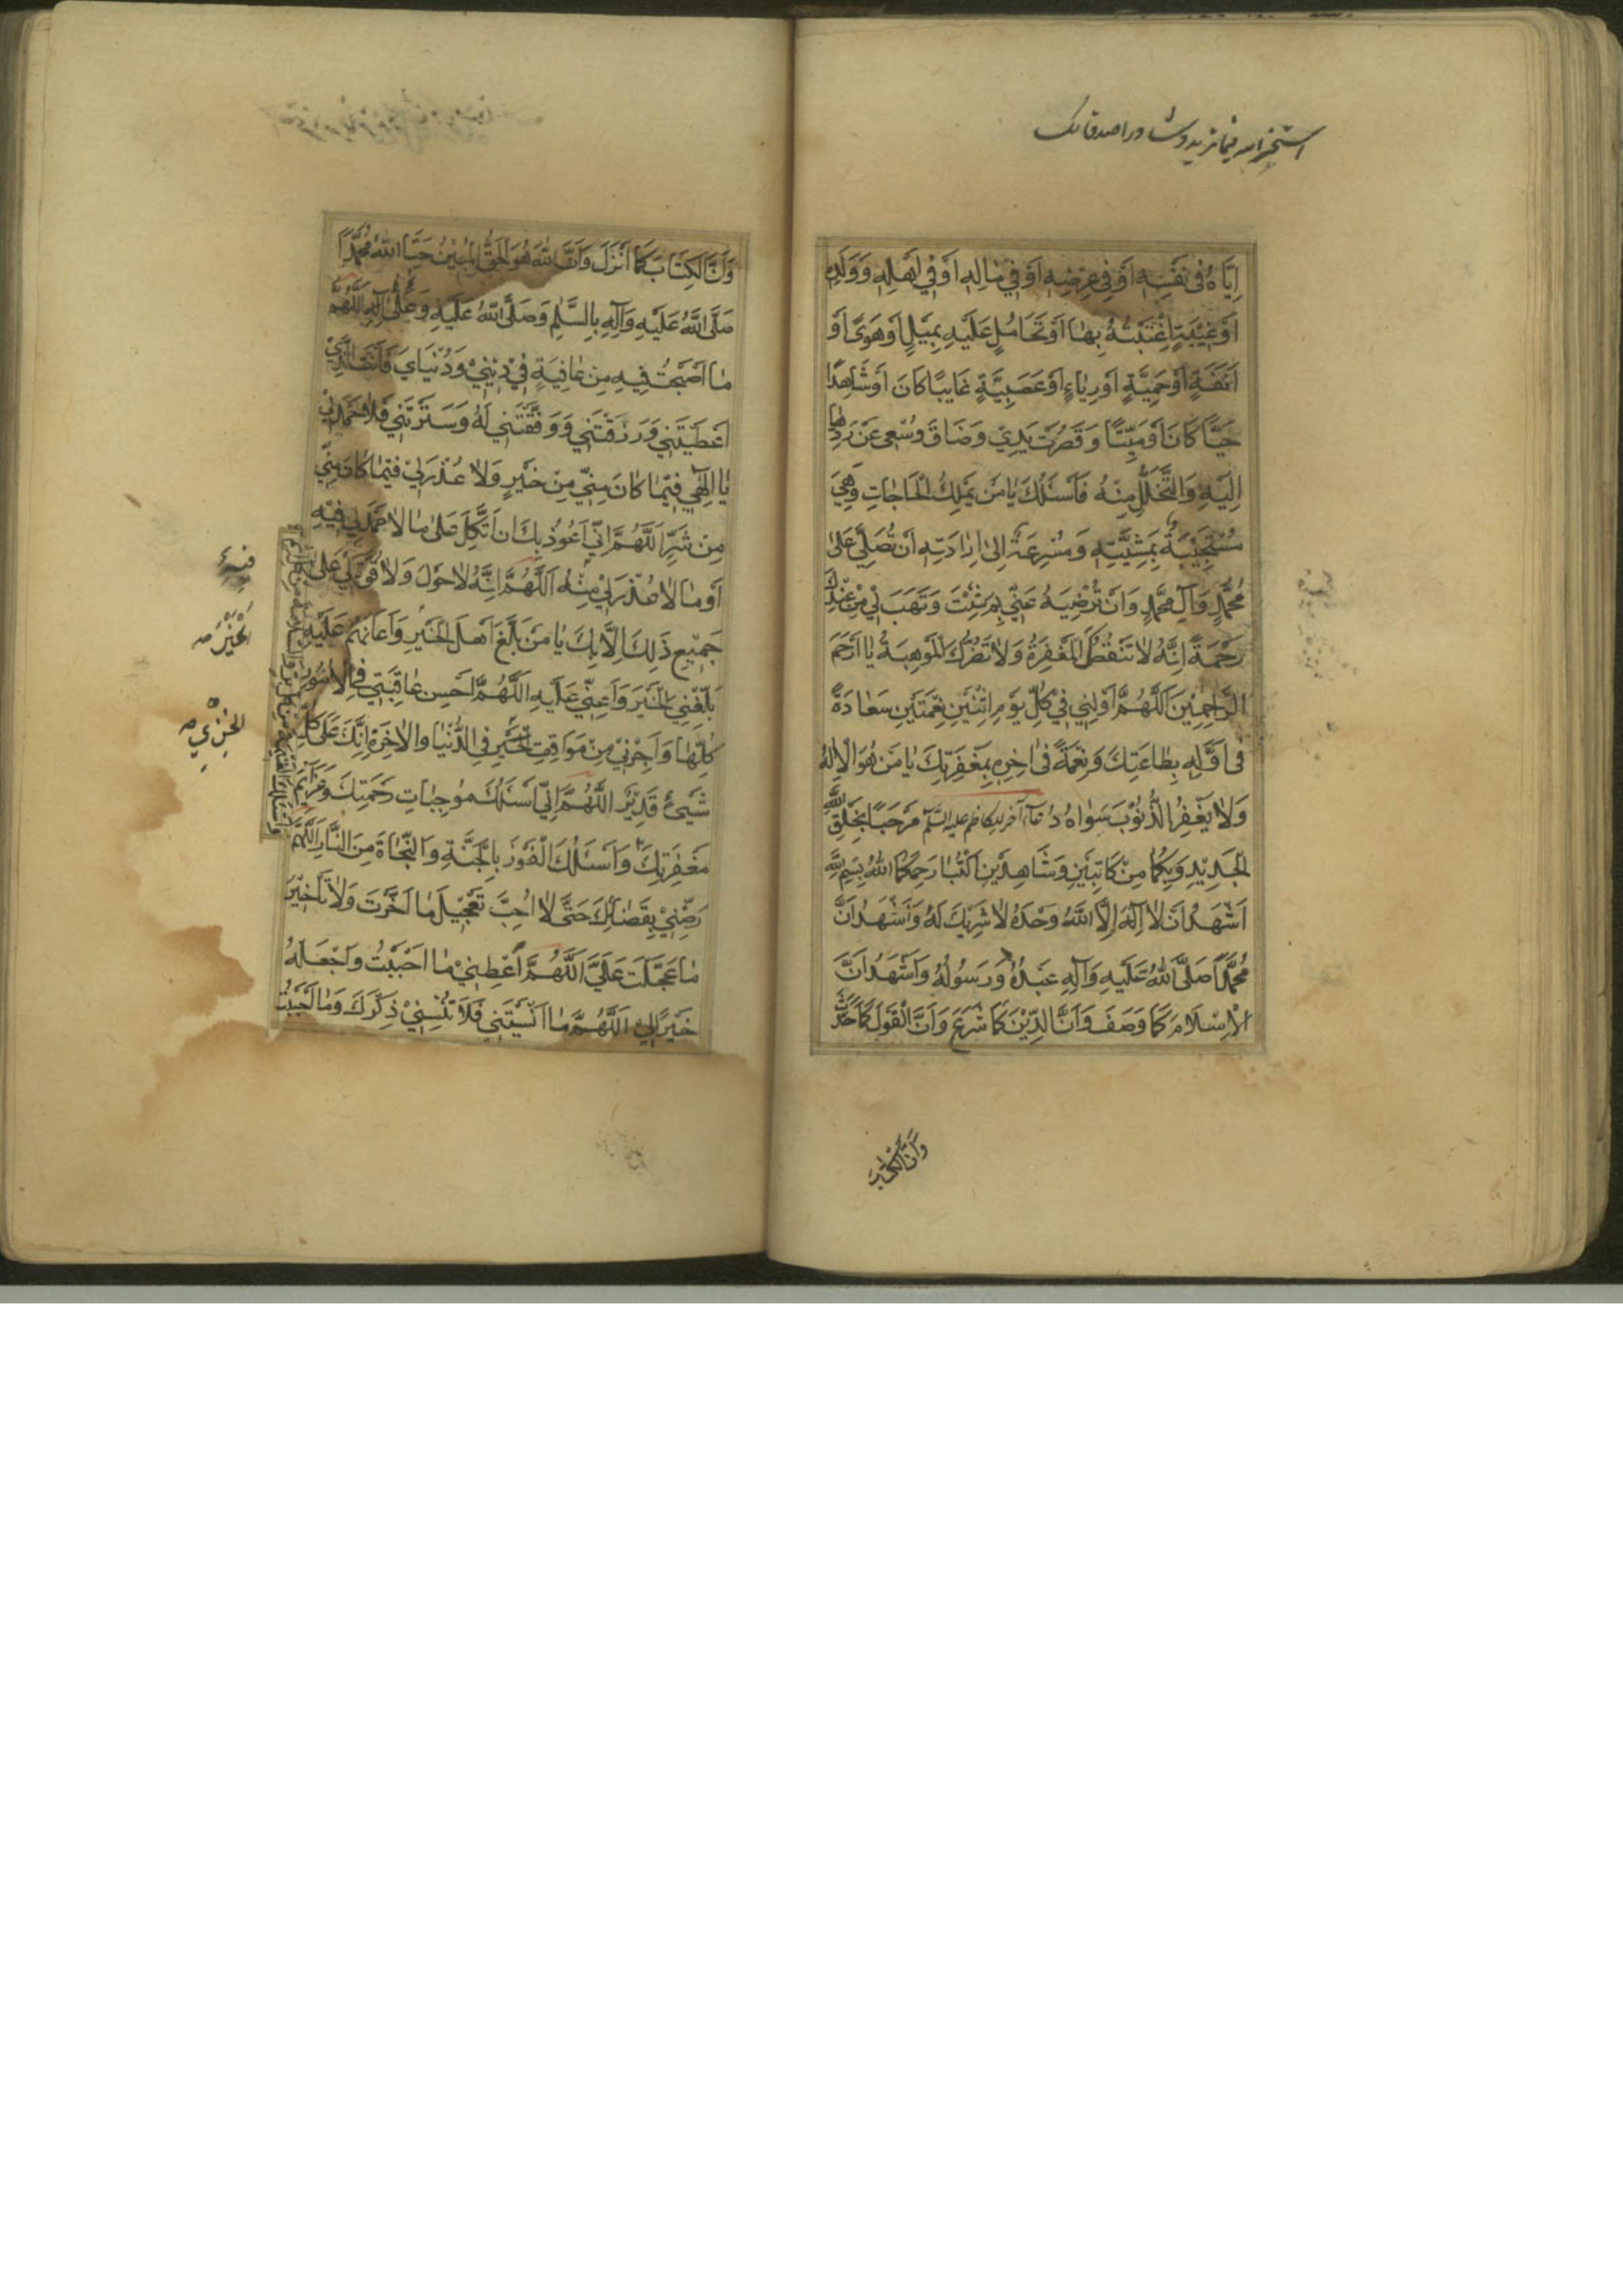 استخر الله فيما تريد وشاور اصدقائك
اِيّاهُ فى نَفْسِهِ اَوْ فِى عِرْضِهِ اَوْ فِي مٰالِهِ اَوْ فِي اَهْلِهِ وَوَلَدِهِ
اَوْ غَيْبَةٍ اغْتَبْتُهُ بِهٰا اَوْ تَحَامُلٍ عَلَيْهِ بِمَيْلٍ اَوْ هَوىً اَوْ
اَنَفَةٍ اَوْ حَمِيَّةٍ اَوْ رِيٰاءٍ اَوْ عَصَبِيَّةٍ غَايِبًا كَانَ اَوْ شَاهِدًا
حَيًّا كَانَ اَوْ مَيِّتًا وَقَصُرَتْ يَدِيْ وَضَاقَ وُسْعِى عَنْ رَدِّهٰا
اِلَيْهِ وَالتَّحَلُّلِ مِنْهُ فَاَسْئَلُكَ يٰا مَنْ يَمْلِكُ الْحٰاجٰاتِ وَهِيَ
مُسْتَجِيْبَةٌ بِمَشِيَّتِهِ وَمُسْرِعَةٌ اِلىٰ اِرٰادَتِهِ اَنْ تُصَلِّيَ عَلىٰ
مُحَمَّدٍ وَآلِ مُحَمَّدٍ وَاَنْ تُرْضِيَهُ عَنّي بِمَ شِئْتَ وَتَهَبَ لِي مِنْ عِنْدِكَ
رَحْمَةً اِنَّهُ لٰا تَنْقُصُكَ الْمَغْفِرَةُ وَلٰا تَضُرُّكَ الْمَوْهِبَةُ يٰا اَرْحَمَ
الرّٰاحِمِيْنَ اَللّٰهُمَّ اَوْلِنِي فِيْ كُلِّ يَوْمِ اِثْنَيْنِ نِعْمَتَيْنِ سَعٰادَةً
فى اَوَّلِهِ بِطٰاعَتِكَ وَنِعْمَةً فىٰ اٰخِرِهِ بِمَغْفِرَتِكَ يٰا مَنْ هُوَ الْاِلٰهُ
وَلٰا يَغْفِرُ الذُّنُوْبَ سِوٰاهُ دُعاء آخر للكاظم عليه السلم مَرْحَبًا بِخَلْقِ اللّٰهِ
الْجَدِيْدِ وَبِكُمٰا مِنْ كَاتِبَيْنِ وَشَاهِدَيْنِ اُكْتُبٰا رَحِمَكُمَا اللّٰهُ بِسْمِ اللّٰهِ
اَشْهَدُ اَنْ لٰا اِلٰهَ اِلَّا اللّٰهُ وَحْدَهُ لٰا شَرِيْكَ لَهُ وَاَشْهَدُ اَنَّ
مُحَمَّدًا صَلَّى اللّٰهُ عَلَيْهِ وَآلِهِ عَبْدُهُ وَرَسُوْلُهُ وَاَشْهَدُ اَنَّ
الْاِسْلَامَ كَمَا وَصَفَ وَاَنَّ الدِّيْنَ كَمَا شَرَعَ وَاَنَّ الْقَوْلَ كَمَا حَدَّثَ
وَاَنَّ الْكِتٰابَ
وَاَنَّ الْكِتَابَ كَمَا اَنْزَلَ وَاَنَّ اللّٰهَ هُوَ الْحَقُّ الْمُبِيْنُ حَيَّا اللّٰهُ مُحَمَّدًا
صَلَّى اللّٰهُ عَلَيْهِ وَآلِهِ بِالسَّلٰمِ وَصَلَّى اللّٰهُ عَلَيْهِ وَعَلىٰ آلِهِ اَللّٰهُمَّ
مٰا اَصْبَحْتُ فِيْهِ مِنْ عٰافِيَةٍ فِيْ دِيْنِيْ وَدُنْيَايَ فَاَنْتَ الَّذِيْ
اَعْطَيْتَنِي وَرَزَقْتَنِي وَوَفَّقْتَنِي لَهُ وَسَتَرْتَنِي فَلٰا حَمْدَ لِي
يٰا اِلٰهِي فِيْمٰا كٰانَ مِنّي مِنْ خَيْرٍ وَلٰا عُذْرَ لِيْ فِيْمٰا كٰانَ مِنّي
مِنْ شَرٍّ اَللّٰهُمَّ اِنّي اَعُوْذُ بِكَ اَنْ اَتَّكِلَ عَلىٰ مٰا لٰا حَمْدَ لِي فِيْهِ
اَوْ مٰا لٰا عُذْرَ لِيْ مِنْهُ اَللّٰهُمَّ اِنَّهُ لٰا حَوْلَ وَلٰا قُوَّةَ لِيْ عَلىٰ
جَمِيْعِ ذٰلِكَ اِلَّا بِكَ يٰا مَنْ بَلَّغَ اَهْلَ الْخَيْرِ وَاَعٰانَهُمْ عَلَيْهِ
بَلِّغْنِي الْخَيْرَ وَاَعِنّي عَلَيْهِ اَللّٰهُمَّ اَحْسِنْ عٰاقِبَتِي فِى الْاُمُوْرِ
كُلِّهٰا وَاَجِرْنِيْ مِنْ مَوَاقِفِ الْخِزْيِ فِى الدُّنْيٰا وَالْاٰخِرَةِ اِنَّكَ عَلىٰ كُلِّ
شَيْئٍ قَدِيْرٌ اَللّٰهُمَّ اِنّي اَسْئَلُكَ مُوْجِبٰاتِ رَحْمَتِكَ وَعَزَائِمَ
مَغْفِرَتِكَ وَاَسْئَلُكَ الْفَوْزَ بِالْجَنَّةِ وَالنَّجٰاةَ مِنَ النّٰارِ اَللّٰهُمَّ
رَضِّنِيْ بِقَضٰائِكَ حَتّٰى لٰا اُحِبَّ تَعْجِيْلَ مٰا اَخَّرْتَ وَلٰا تَأْخِيْرَ
مٰا عَجَّلْتَ عَلَيَّ اَللّٰهُمَّ اَعْطِنِيْ مٰا اَحْبَبْتُ وَاجْعَلْهُ
خَيْرًا لِي اَللّٰهُمَّ مٰا اَنْسَيْتَنِي فَلَا تُنْسِنِيْ ذِكْرَكَ وَمٰا اَحْبَبْتُ
فيه
الخير
الخزي